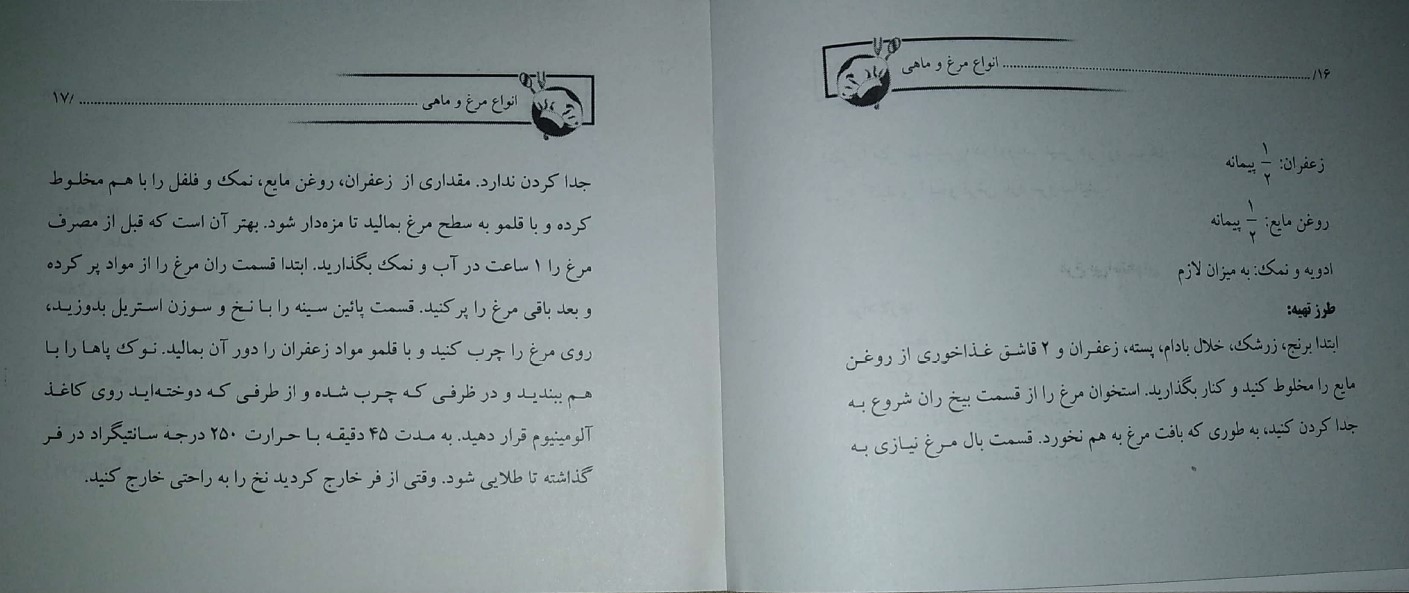 انواع مرغ و ماهی ........................................ /۱۶
زعفران: ۱/۲ پیمانه
روغن مایع: ۱/۲ پیمانه
ادویه و نمک: به میزان لازم
طرز تهیه:
ابتدا برنج، زرشک، خلال بادام، پسته، زعفران و ۲ قاشق غذاخوری از روغن
مایع را مخلوط کنید و کنار بگذارید. استخوان مرغ را از قسمت بیخ ران شروع به
جدا کردن کنید، به طوری که بافت مرغ به هم نخورد. قسمت بال مرغ نیازی به
انواع مرغ و ماهی ........................................ /۱۷
جدا کردن ندارد. مقداری از زعفران، روغن مایع، نمک و فلفل را با هم مخلوط
کرده و با قلمو به سطح مرغ بمالید تا مزه‌دار شود. بهتر آن است که قبل از مصرف
مرغ را ۱ ساعت در آب و نمک بگذارید. ابتدا قسمت ران مرغ را از مواد پر کرده
و بعد باقی مرغ را پر کنید. قسمت پائین سینه را با نخ و سوزن استریل بدوزید،
روی مرغ را چرب کنید و با قلمو مواد زعفران را دور آن بمالید. نوک پاها را با
هم ببندید و در ظرفی که چرب شده و از طرفی که دوخته‌اید روی کاغذ
آلومینیوم قرار دهید. به مدت ۴۵ دقیقه با حرارت ۲۵۰ درجه سانتیگراد در فر
گذاشته تا طلایی شود. وقتی از فر خارج کردید نخ را به راحتی خارج کنید.